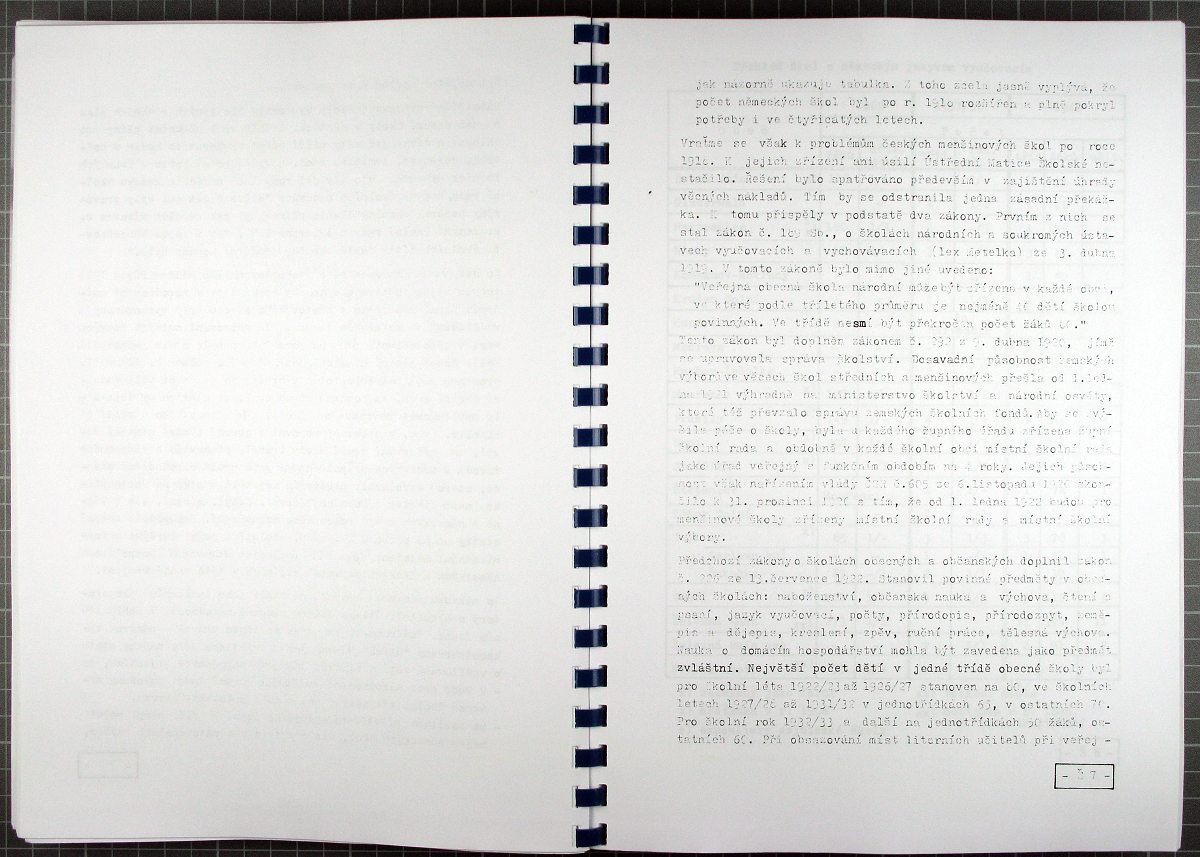 jak názorně ukazuje tabulka. Z toho zcela jasně vyplývá, že
počet německých škol byl po r. 1910 rozšířen a plně pokryl
potřeby i ve čtyřicátých letech.
Vraťme se však k problémům českých menšinových škol po roce
1918. K jejich zřízení ani úsilí Ústřední Matice Školské ne-
stačilo. Řešení bylo spatřováno především v zajištění úhrady
věcných nákladů. Tím by se odstranila jedna zásadní překáž-
ka. K tomu přispěly v podstatě dva zákony. Prvním z nich se
stal zákon č. 189 Sb., o školách národních a soukromých ústa-
vech vyučovacích a vychovávacích (lex Metelka) ze 3. dubna
1919. V tomto zákoně bylo mimo jiné uvedeno:
"Veřejná obecná škola národní může být zřízena v každé obci,
ve které podle tříletého průměru je nejméně 40 dětí školou
povinných. Ve třídě nesmí být překročen počet žáků 60."
Tento zákon byl doplněn zákonem č. 292 z 9. dubna 1920, jímž
se upravovala správa školství. Dosavadní působnost zemských
výborů ve věcech škol středních a menšinových přešla od 1.led-
na 1921 výhradně na ministerstvo školství a národní osvěty,
které též převzalo správu zemských školních fondů. Aby se zvý-
šila péče o školy, byla u každého župního úřadu zřízena župní
školní rada a obdobně v každé školní obci místní školní rada
jako úřad veřejný s funkčním obdobím na 4 roky. Jejich působ-
nost však nařízením vlády ČSR č.605 ze 6.listopadu 1920 skon-
čilo k 31. prosinci 1920 s tím, že od 1. ledna 1922 budou pro
menšinové školy zřízeny místní školní rady a místní školní
výbory.
Předchozí zákony o školách obecných a občanských doplnil zákon
č. 226 ze 13.července 1922. Stanovil povinné předměty v obec-
ných školách: náboženství, občanská nauka a výchova, čtení a
psaní, jazyk vyučovací, počty, přírodopis, přírodozpyt, země-
pis a dějepis, kreslení, zpěv, ruční práce, tělesná výchova.
Nauka o domácím hospodářství mohla být zavedena jako předmět
zvláštní. Největší počet dětí v jedné třídě obecné školy byl
pro školní léta 1922/23 až 1926/27 stanoven na 80, ve školních
letech 1927/28 až 1931/32 v jednotřídkách 65, v ostatních 70.
Pro školní rok 1932/33 a další na jednotřídkách 50 žáků, os-
tatních 60. Při obsazování míst literních učitelů při veřej -
- Š 7 -